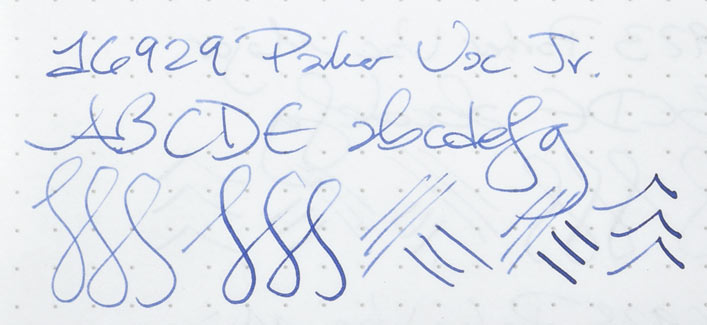 16929 Parker Vac Jr.
ABCDE abcdefg